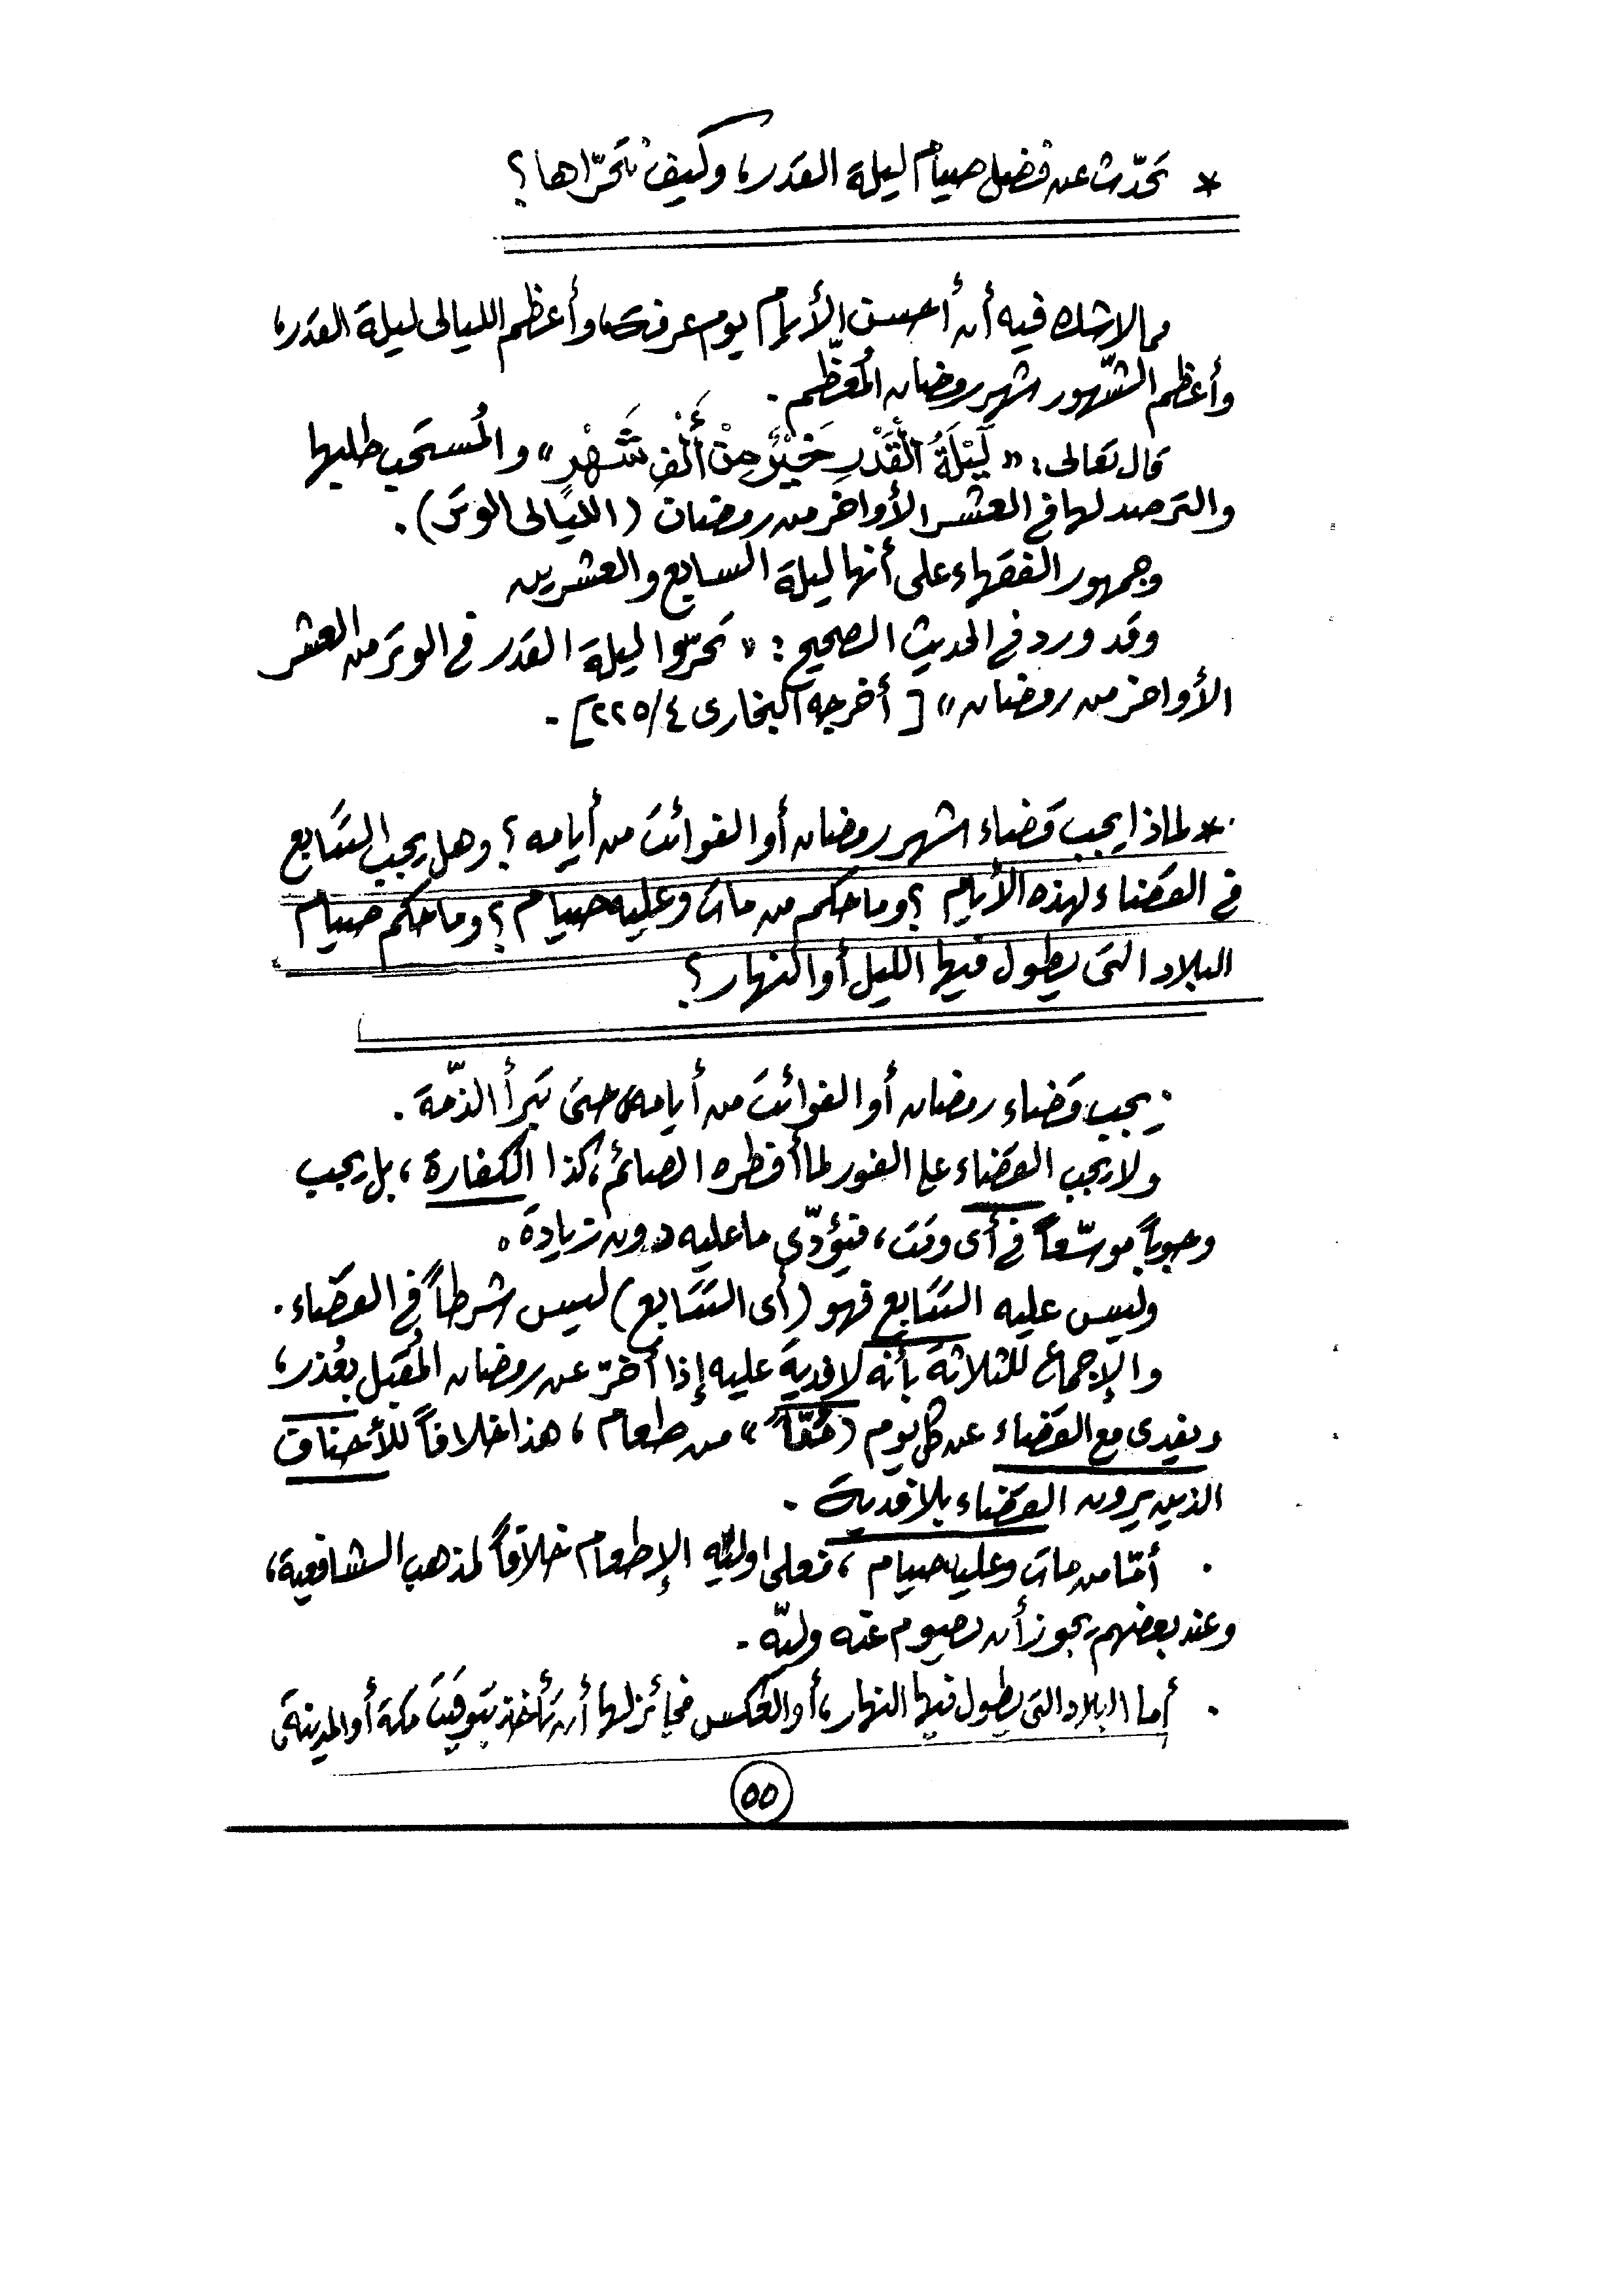 * تحدّث عن فضل صيام ليلة القدر، وكيف نتحرّاها؟
مما لا شك فيه أن أحسن الأيام يوم عرفة، وأعظم الليالى ليلة القدر،
وأعظم الشّهور شهر رمضان المُعظّم.
قال تعالى: « لَيْلَةُ الْقَدْرِ خَيْرٌ مِنْ أَلْفِ شَهْرٍ » والمُستحب طلبها
والترصد لها فى العشر الأواخر من رمضان (الليالى الوتر).
وجمهور الفقهاء على أنها ليلة السابع والعشرين
وقد ورد فى الحديث الصحيح: « تحرّوا ليلة القدر فى الوتر من العشر
الأواخر من رمضان » [أخرجه البخارى ٤/٢٢٥].
* لماذا يجب قضاء شهر رمضان أو الفوائت من أيامه؟ وهل يجب التتابع
فى القضاء لهذه الأيام؟ وما حكم من مات وعليه صيام؟ وما حكم صيام
البلاد التى يطول فيها الليل أو النهار؟
. يجب قضاء رمضان أو الفوائت من أيامه حتى تبرأ الذّمة.
ولا يجب القضاء على الفور لما أفطره الصائم، كذا الكفارة، بل يجب
وجوباً موسّعاً فى أى وقت، فيؤدّى ما عليه دون زيادة.
وليس عليه التتابع فهو (أى التتابع) ليس شرطاً فى القضاء.
والإجماع للثلاثة بأنه لا فدية عليه إذا أخّر عن رمضان المُقبل بعُذر،
ويفدى مع القضاء عن كل يوم ( » من طعام، هذا خلافاً للأحناف
الذين يرون القضاء بلا فدية.
. أمّا من مات وعليه صيام، فعلى وليّه الإطعام خلافاً لمذهب الشافعية،
وعند بعضهم يجوز أن يصوم عنه وليّه.
. أما البلاد التى يطول فيها النهار، أو العكس فجائز لها أن تأخذ بتوقيت مكة أو المدينة،
٥٥